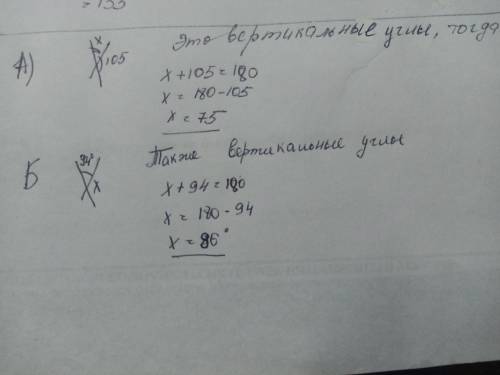 = 155
А) x 105 Это вертикальные углы, тогда
x + 105 = 180
x = 180 - 105
x = 75
Б 94° x Также вертикальные углы
x + 94 = 180
x = 180 - 94
x = 86°